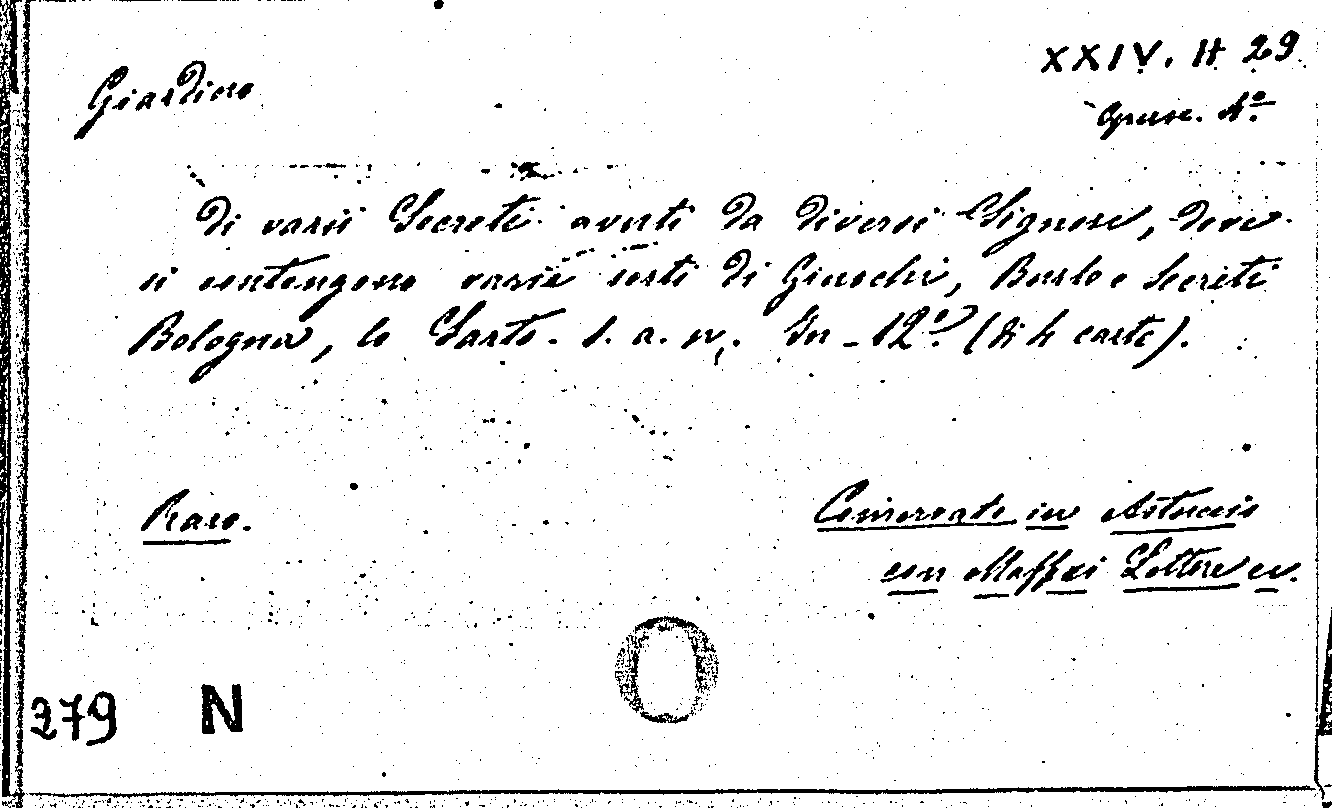 XXIV. H 29
Giardino
Opusc. 4º
di varii Secreti avuti da diversi Signori, dove
si contengono varie sorti di Giuochi, Burle e Secreti
Bologna, lo Sarti. s. a. n. In-12º (di 4 carte).
Raro.
Conservato in Astuccio
con Maffei Lettere ec.
O
279 N